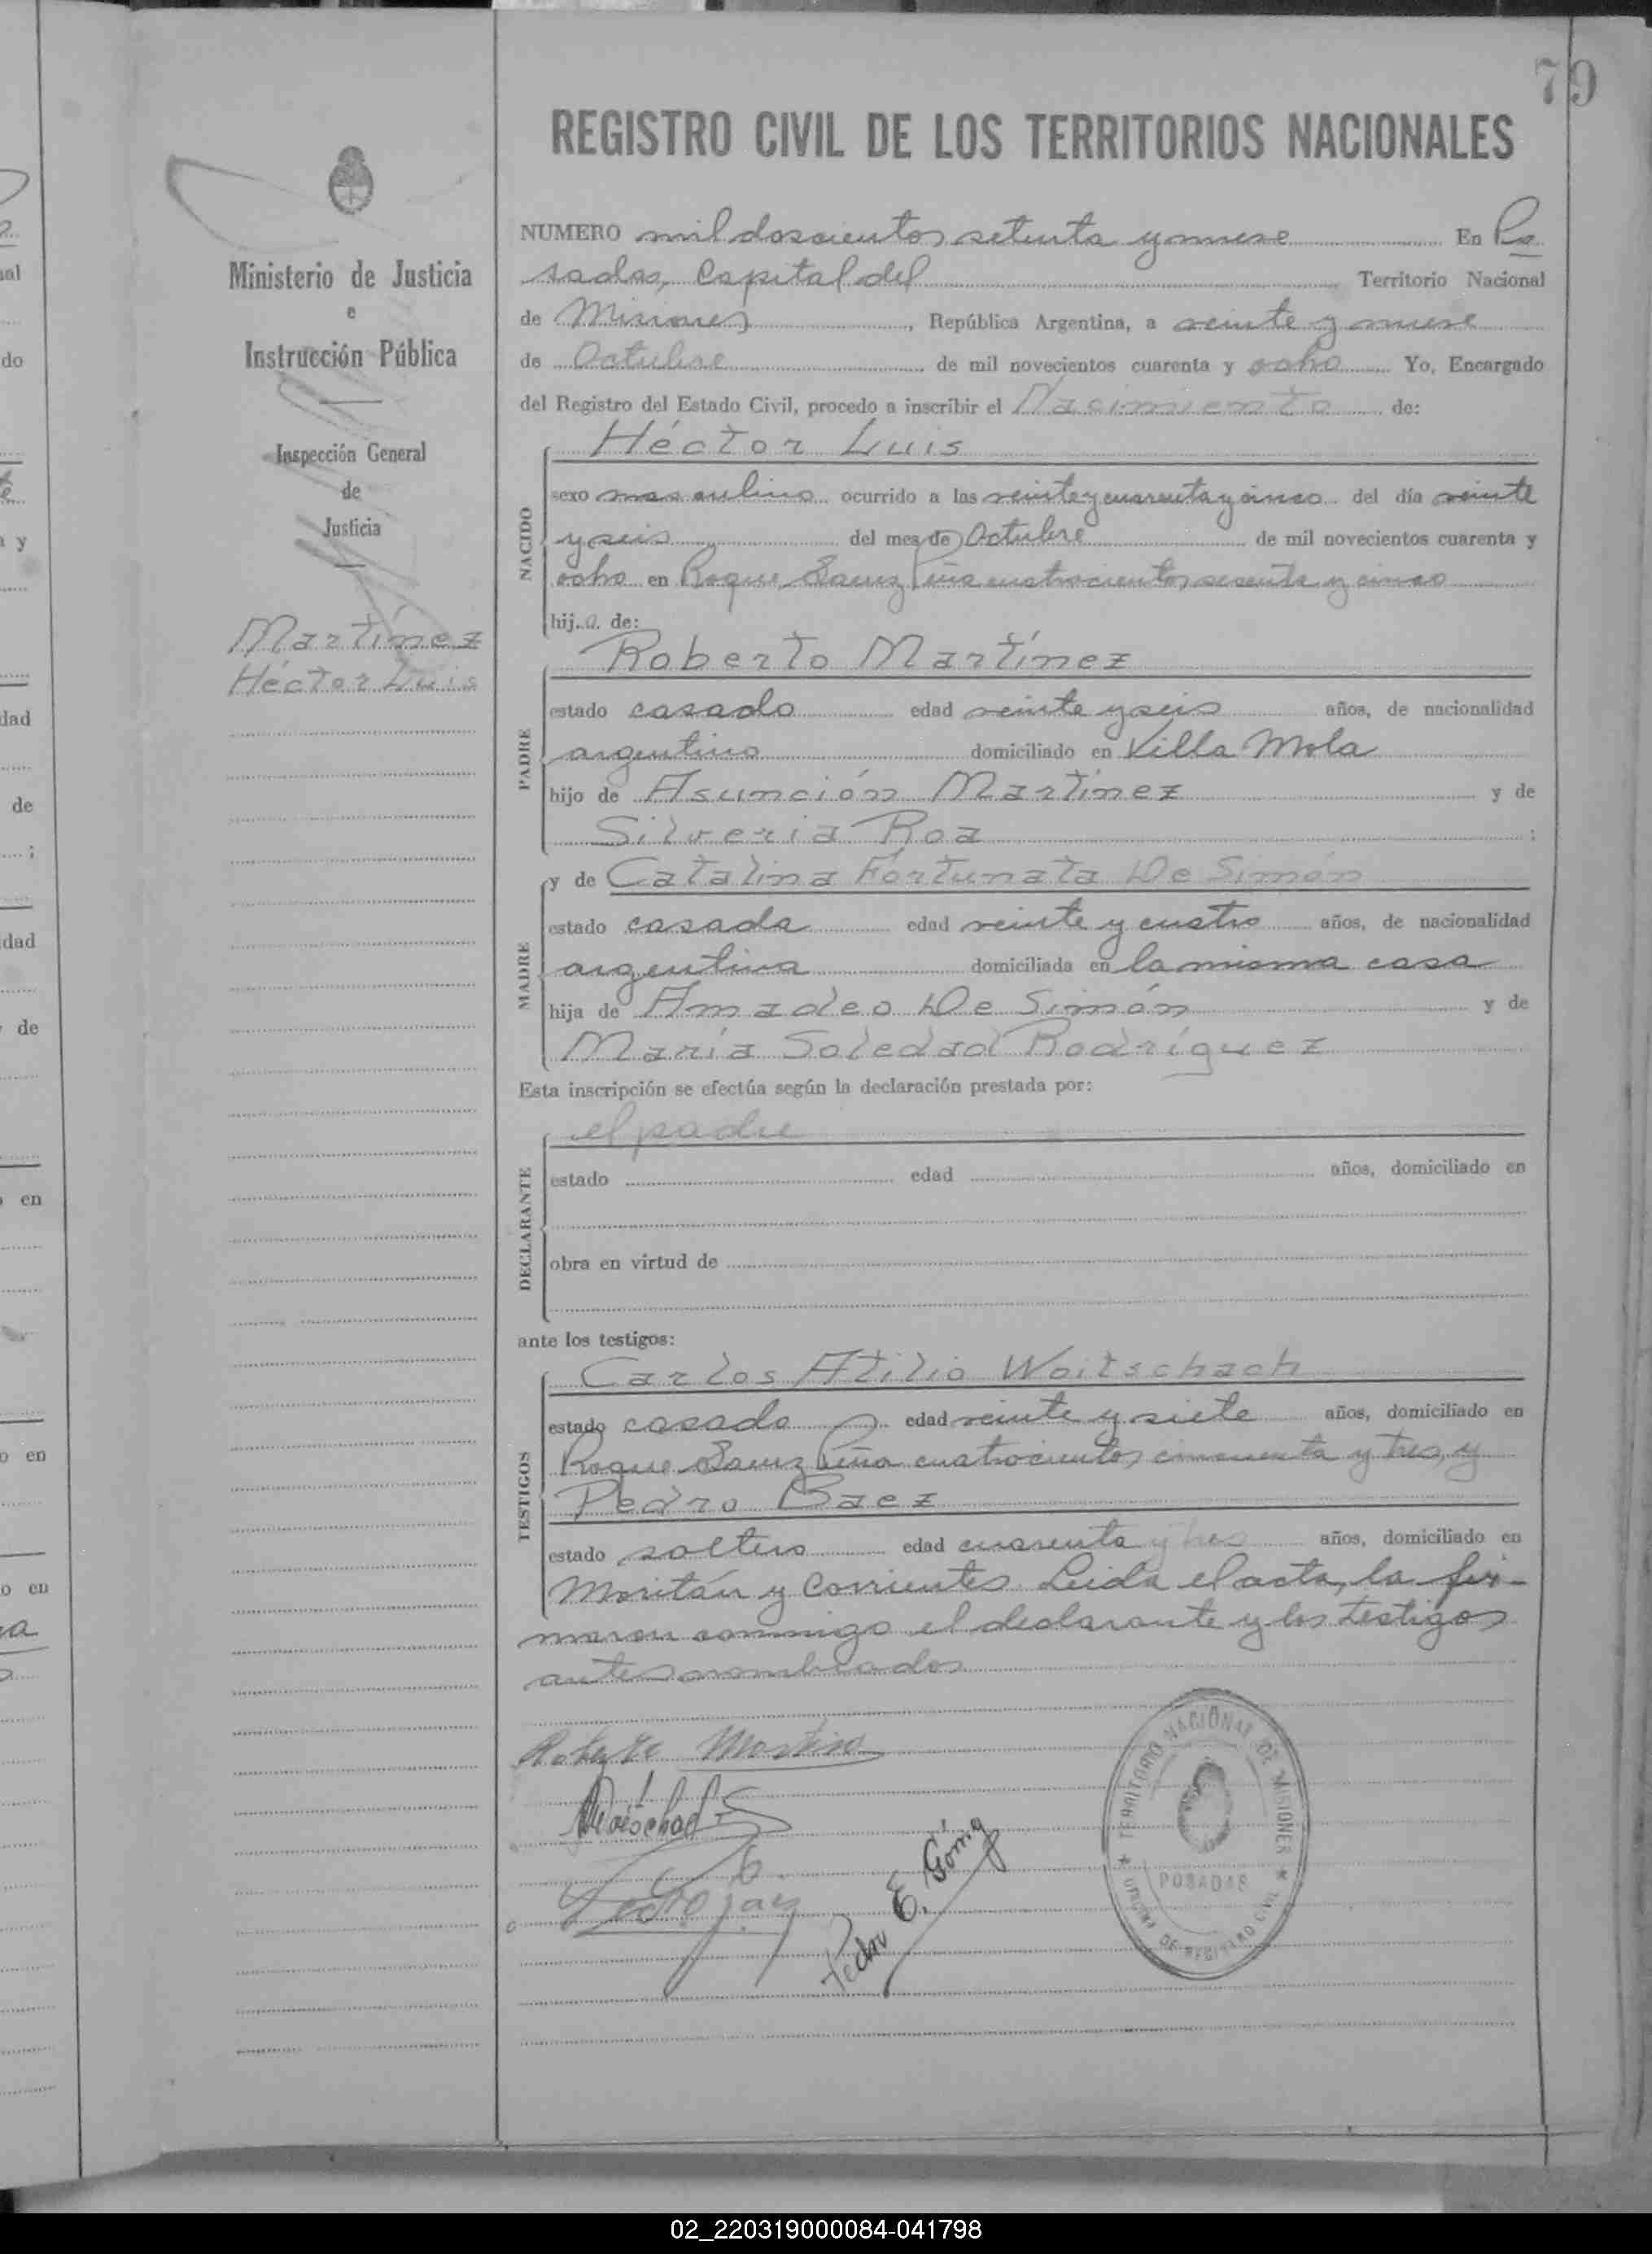 79
REGISTRO CIVIL DE LOS TERRITORIOS NACIONALES
Ministerio de Justicia
e
Instrucción Pública
Inspección General
de
Justicia
Martínez
Héctor Luis
NUMERO mil doscientos setenta y nueve En Po
sadas, Capital del Territorio Nacional
de Misiones, República Argentina, a veinte y nueve
de Octubre de mil novecientos cuarenta y ocho Yo, Encargado
del Registro del Estado Civil, procedo a inscribir el Nacimiento de:
NACIDO
Héctor Luis
sexo masculino ocurrido a las veinte y cuarenta y cinco del día veinte
y seis del mes de Octubre de mil novecientos cuarenta y
ocho en Roque Saenz Peña cuatrocientos sesenta y cinco
hij.o. de:
PADRE
Roberto Martínez
estado casado edad veinte y seis años, de nacionalidad
argentino domiciliado en Villa Mola
hijo de Asunción Martínez y de
Silveria Roa ;
MADRE
y de Catalina Fortunata De Simón
estado casada edad veinte y cuatro años, de nacionalidad
argentina domiciliada en la misma casa
hija de Amadeo De Simón y de
María Soledad Rodríguez
Esta inscripción se efectúa según la declaración prestada por:
DECLARANTE
el padre
estado edad años, domiciliado en
obra en virtud de
ante los testigos:
TESTIGOS
Carlos Atilio Woitschach
estado casado edad veinte y siete años, domiciliado en
Roque Saenz Peña cuatrocientos cincuenta y tres, y
Pedro Baez
estado soltero edad cuarenta y tres años, domiciliado en
Moritán y Corrientes. Leida el acta, la fir-
maron conmigo el declarante y los testigos
antes nombrados
Roberto Martinez
Woischach
Pedro Baez
Pedro E.
TERRITORIO NACIONAL DE MISIONES
POSADAS
OFICINA DE REGISTRO CIVIL
02_220319000084-041798